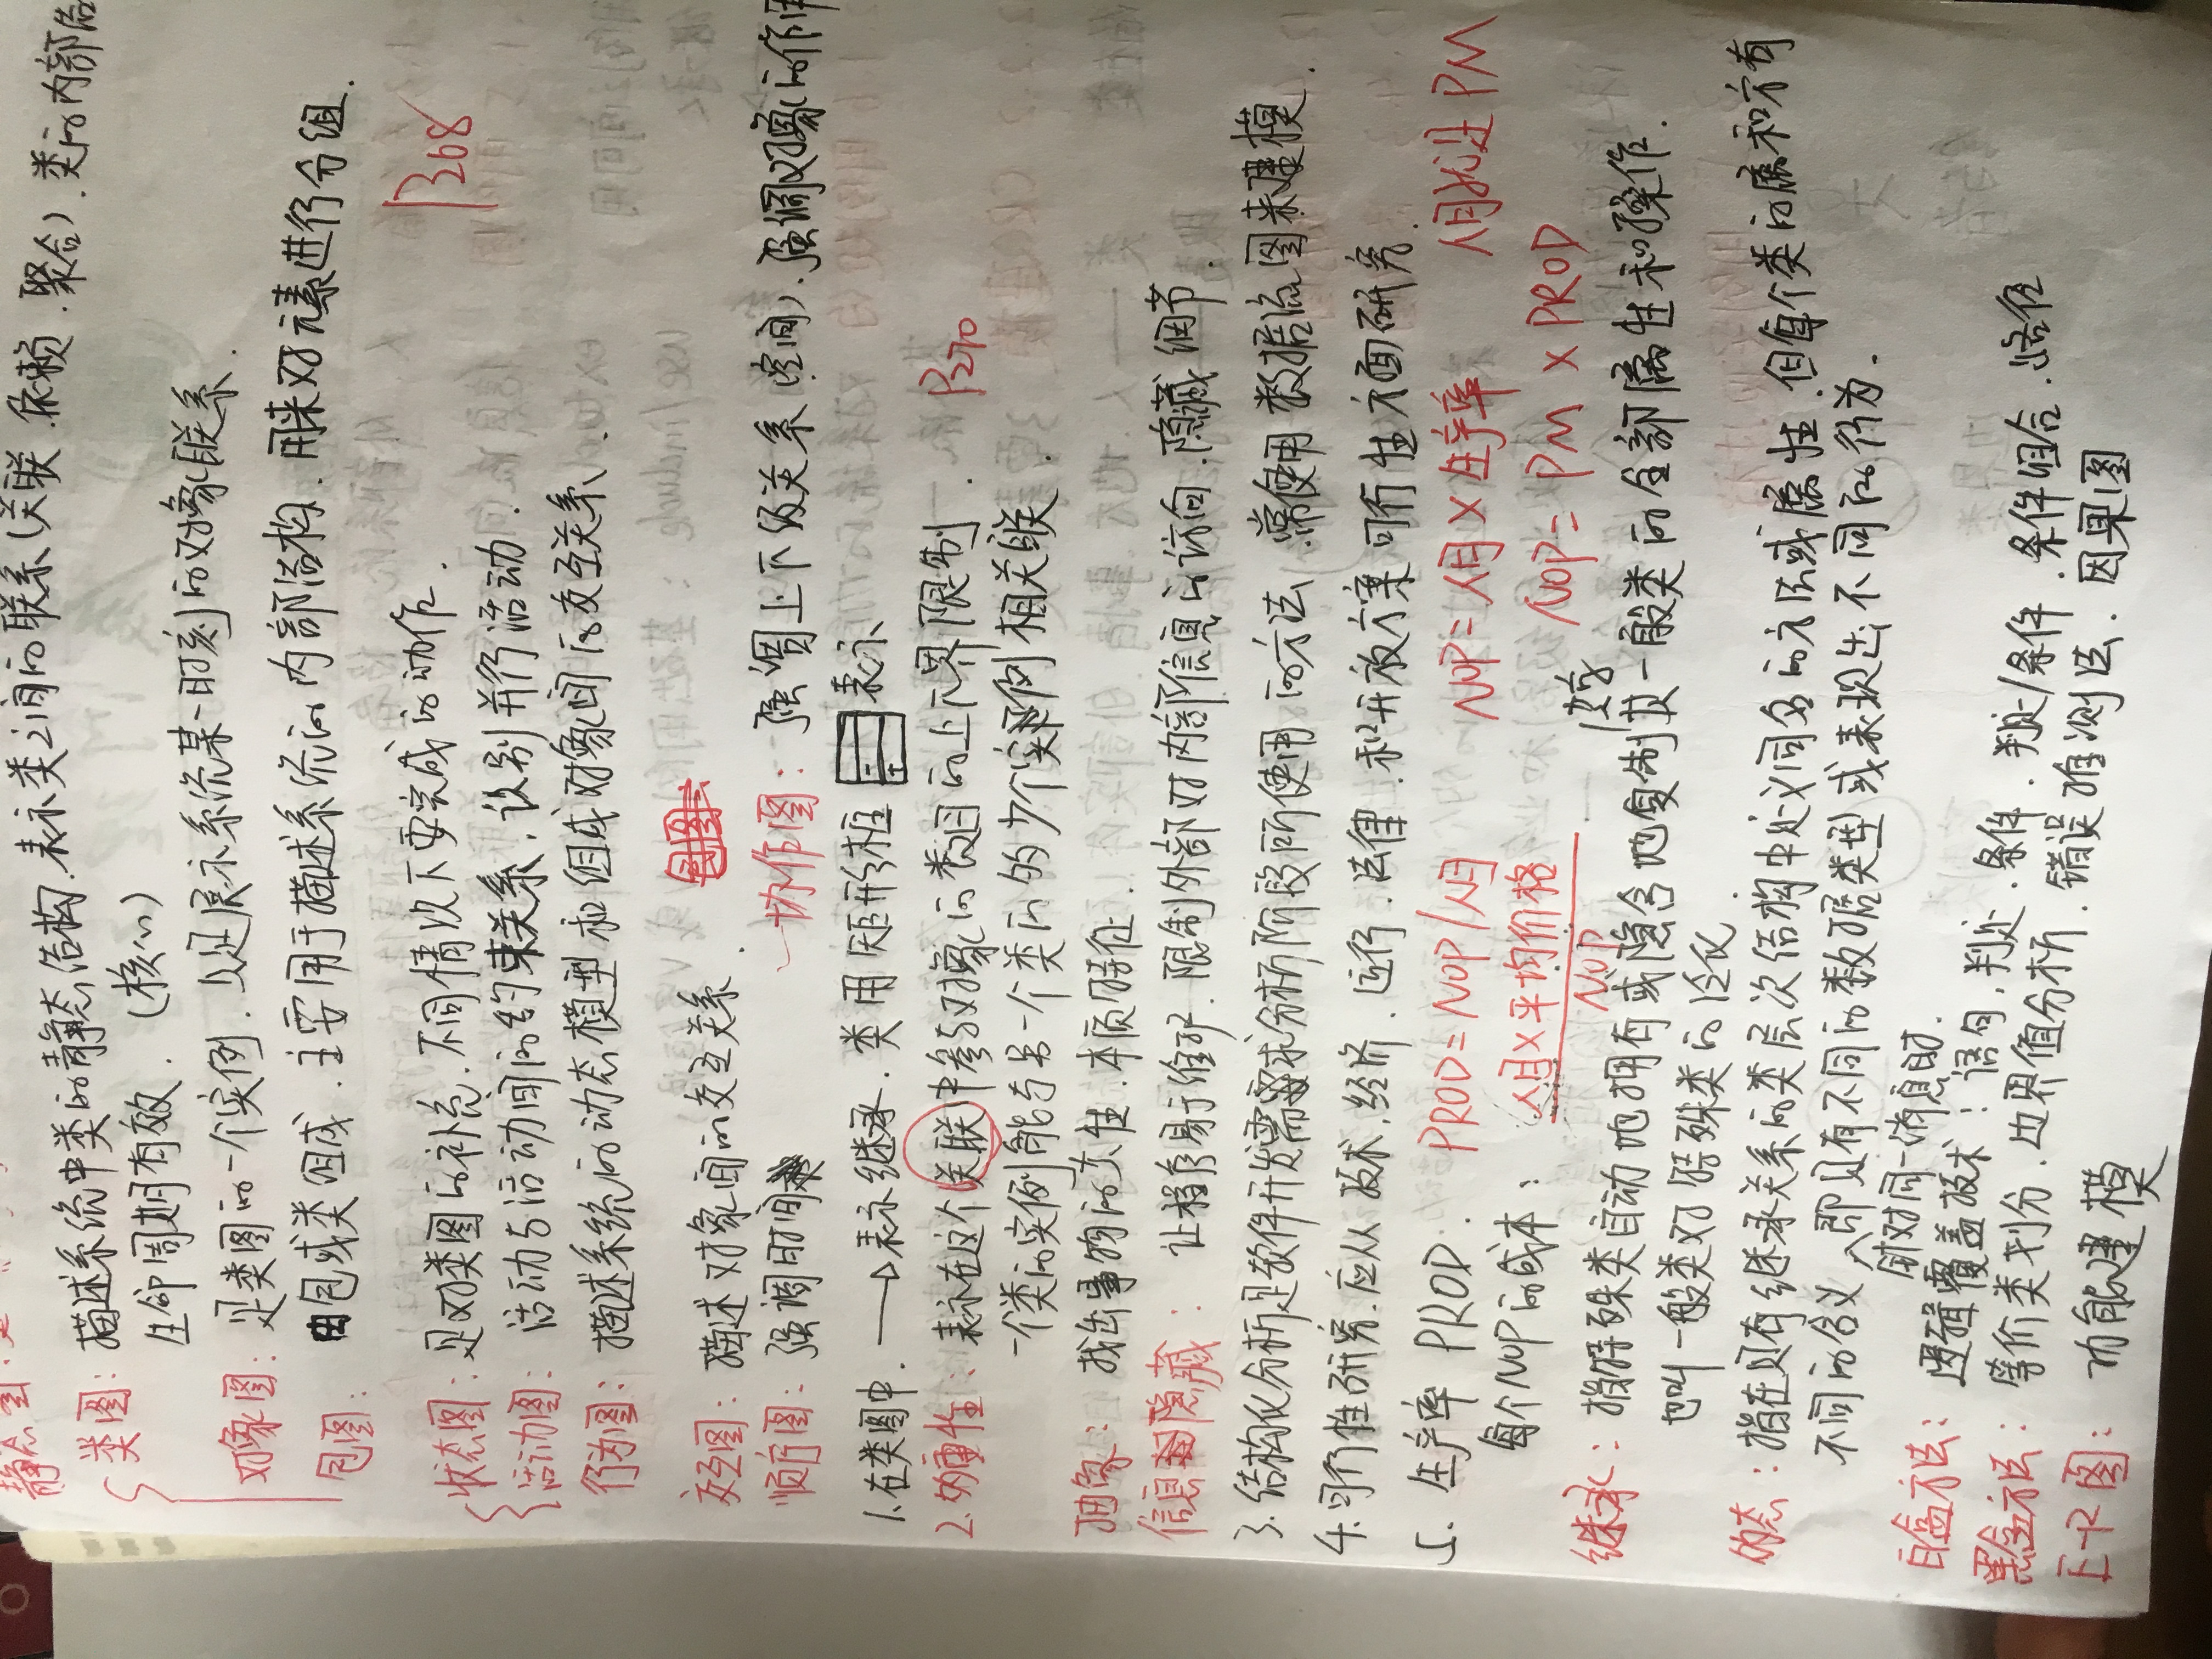 静态图:
描述系统中类的静态结构.表示类之间的联系(关联.依赖.聚合).类的内部结
类图: 生命周期有效. (核心)
对象图: 是类图的一个实例.只是展示系统某一时刻的对象联系.
包图: 由包或类组成.主要用于描述系统的内部结构.用来对元素进行分组.
P268
状态图: 是对类图的补充.不同情况下要完成的动作.
活动图: 活动与活动间的约束关系.识别并行活动.
行为图: 描述系统的动态模型和组成对象间的交互关系.
交互图: 描述对象间的交互关系.
顺序图: 强调时间 协作图: 强调上下级关系(空间).强调对象的作用
1.在类图中. 表示继承.类用矩形框 表示
2.多重性: 表示在这个关联中参与对象的数目的上下界限制. P270
一个类的实例能与另一个类的多少个实例相关联.
抽象: 找出事物的共性.本质特征.
信息隐藏: 让程序易于维护.限制外部对内部信息的访问.隐藏细节.
3.结构化分析是软件开发需求分析阶段所使用的方法.常使用数据流图来建模.
4.可行性研究.应从技术.经济.运行.法律.和开放方案可行性方面研究.
5. 生产率 PROD. PROD=NOP/人月 NOP=人月×生产率 人月就是PM
每个NOP的成本: 人月×平均价格 NOP NOP=PM×PROD
继承: 指特殊类自动地拥有或隐含地复制其一般类的全部属性和操作.
也叫一般类对特殊类的泛化.
多态: 指在具有继承关系的类层次结构中定义同名的方法或属性.但每个类的属和方有
不同的含义 即具有不同的数据类型或表现出不同的行为.
针对同一消息时.
白盒方法: 逻辑覆盖技术: 语句.判定.条件.判定/条件.条件组合.路径
黑盒方法: 等价类划分.边界值分析.错误推测法.因果图
E-R图: 功能建模